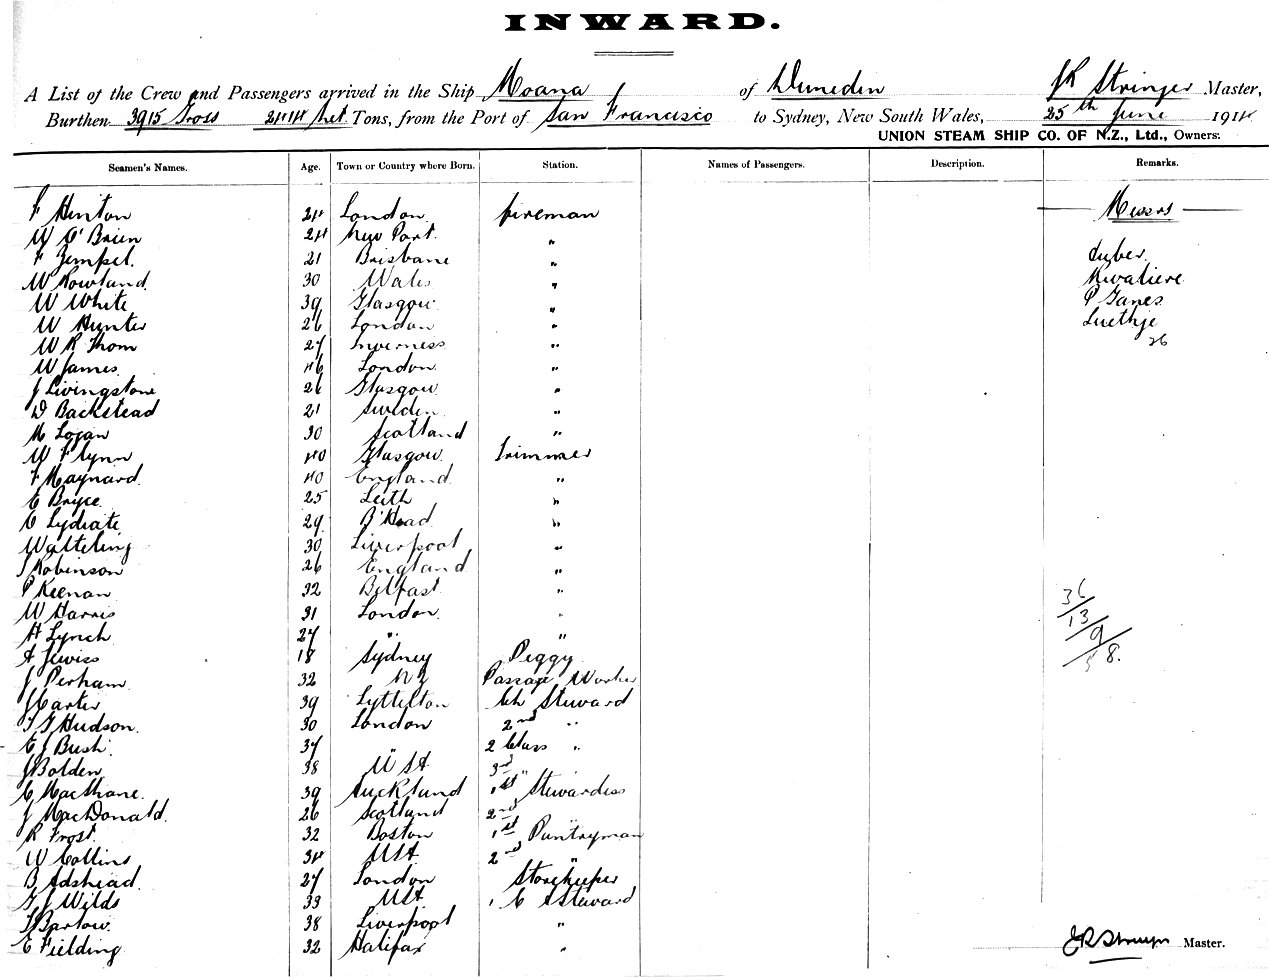 INWARD.
A List of the Crew and Passengers arrived in the Ship Moana of Dunedin JR Stringer Master,
Burthen 3915 Gross 2414 Net Tons, from the Port of San Francisco to Sydney, New South Wales, 25th June 1914
UNION STEAM SHIP CO. OF N.Z., Ltd., Owners.
Seamen's Names. Age. Town or Country where Born. Station. Names of Passengers. Description. Remarks.
F Hinton 24 London fireman Messrs
W O'Brien 24 New Port. "
F Zempel. 21 Brisbane " Luber.
W Rowland. 30 Wales " Rivaliere
W White 39 Glasgow " P Ganes
W Hunter 26 London " Luethje
W R Thom 27 Inverness " 26
W James. 46 London "
J Livingstone 26 Glasgow "
D Backstead 21 Sweden "
M Logan 30 Scotland "
W Flynn 40 Glasgow Trimmer
F Maynard. 40 England "
C Bryce 25 Leith "
C Lydiate 29 B'Head "
Watteling 30 Liverpool "
J Robinson 26 England "
P Keenan 32 Belfast "
W Harris 31 London "
H Lynch 27 " "
A Jewiss 18 Sydney Peggy
J Perham 32 NZ Passage Worker
J Carter 39 Lyttelton Ch Steward
T G Hudson. 30 London 2nd "
E J Bush 37 " 2 Class "
J Bolden 38 USA 3rd "
C MacShane 39 Auckland 1st Stewardess
J MacDonald. 26 Scotland 2nd "
R Frost. 32 Boston 1st Pantryman
W Collins 34 USA 2nd "
B Adshead. 27 London Storekeeper
G J Wilds 33 USA. 1 C Steward
T Barlow. 38 Liverpool "
E Fielding 32 Halifax "
36
13
9
58.
JR Stringer Master.